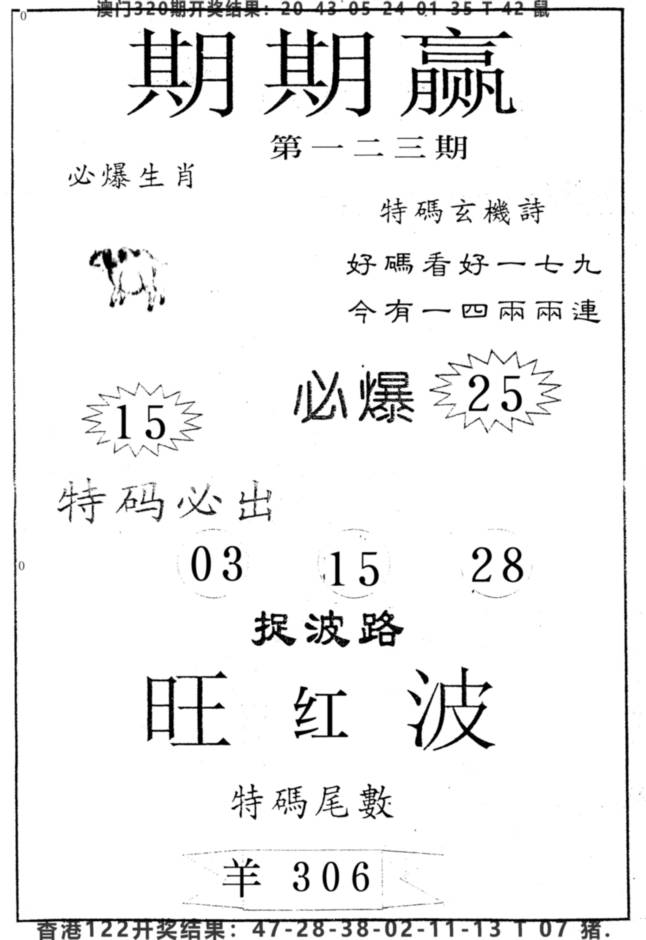 澳门320期开奖结果：20-43-05-24-01-35 T 42 鼠
0
期期赢
第一二三期
必爆生肖
特碼玄機詩
好碼看好一七九
今有一四兩兩連
15
必爆
25
特码必出
03 15 28
0
捉波路
旺红波
特碼尾數
羊 306
香港122开奖结果：47-28-38-02-11-13 T 07 猪.